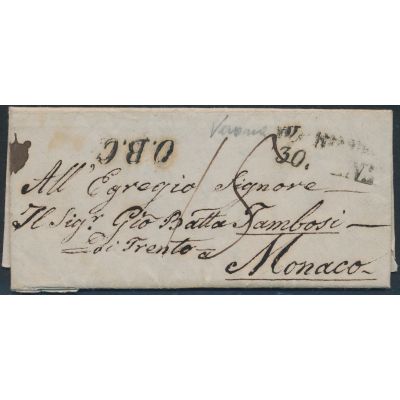 Verona
30.
O.B.C
All' Egregio Signore
Il Sigr. Gio Batta Tambosi
di Trento a
Monaco